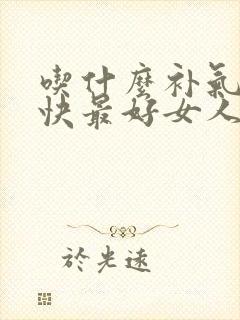 喫什麼补氣
快最好女人
於光遠